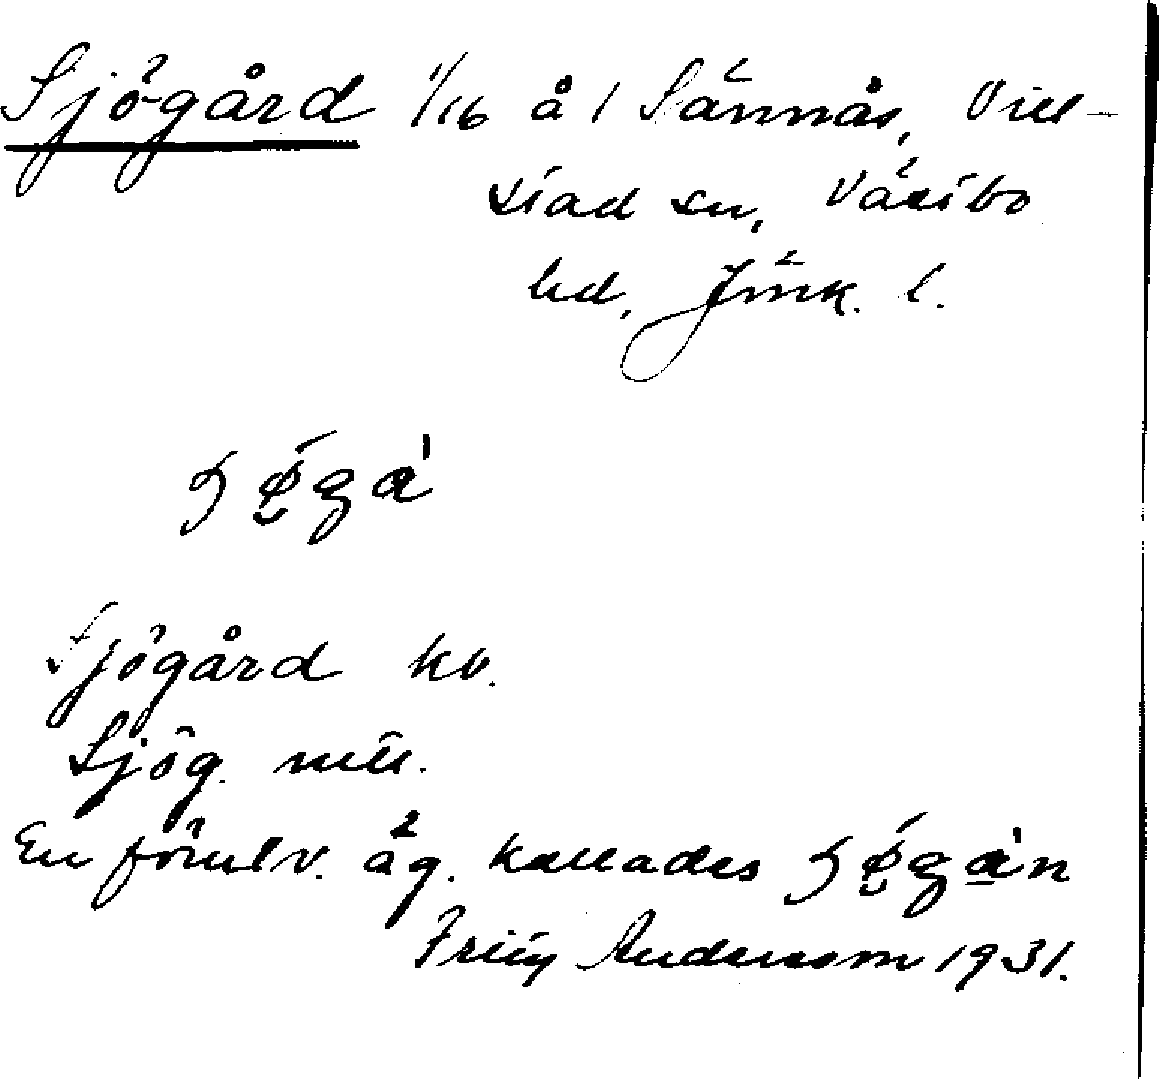 Sjögård 1/16 å 1 Sännås, Vill-
stad sn, Västbo
hd, Jönk. l.
Sjögård kb.
Sjög. mtl.
En förutv. äg. kallades
Fritz Andersson 1931.